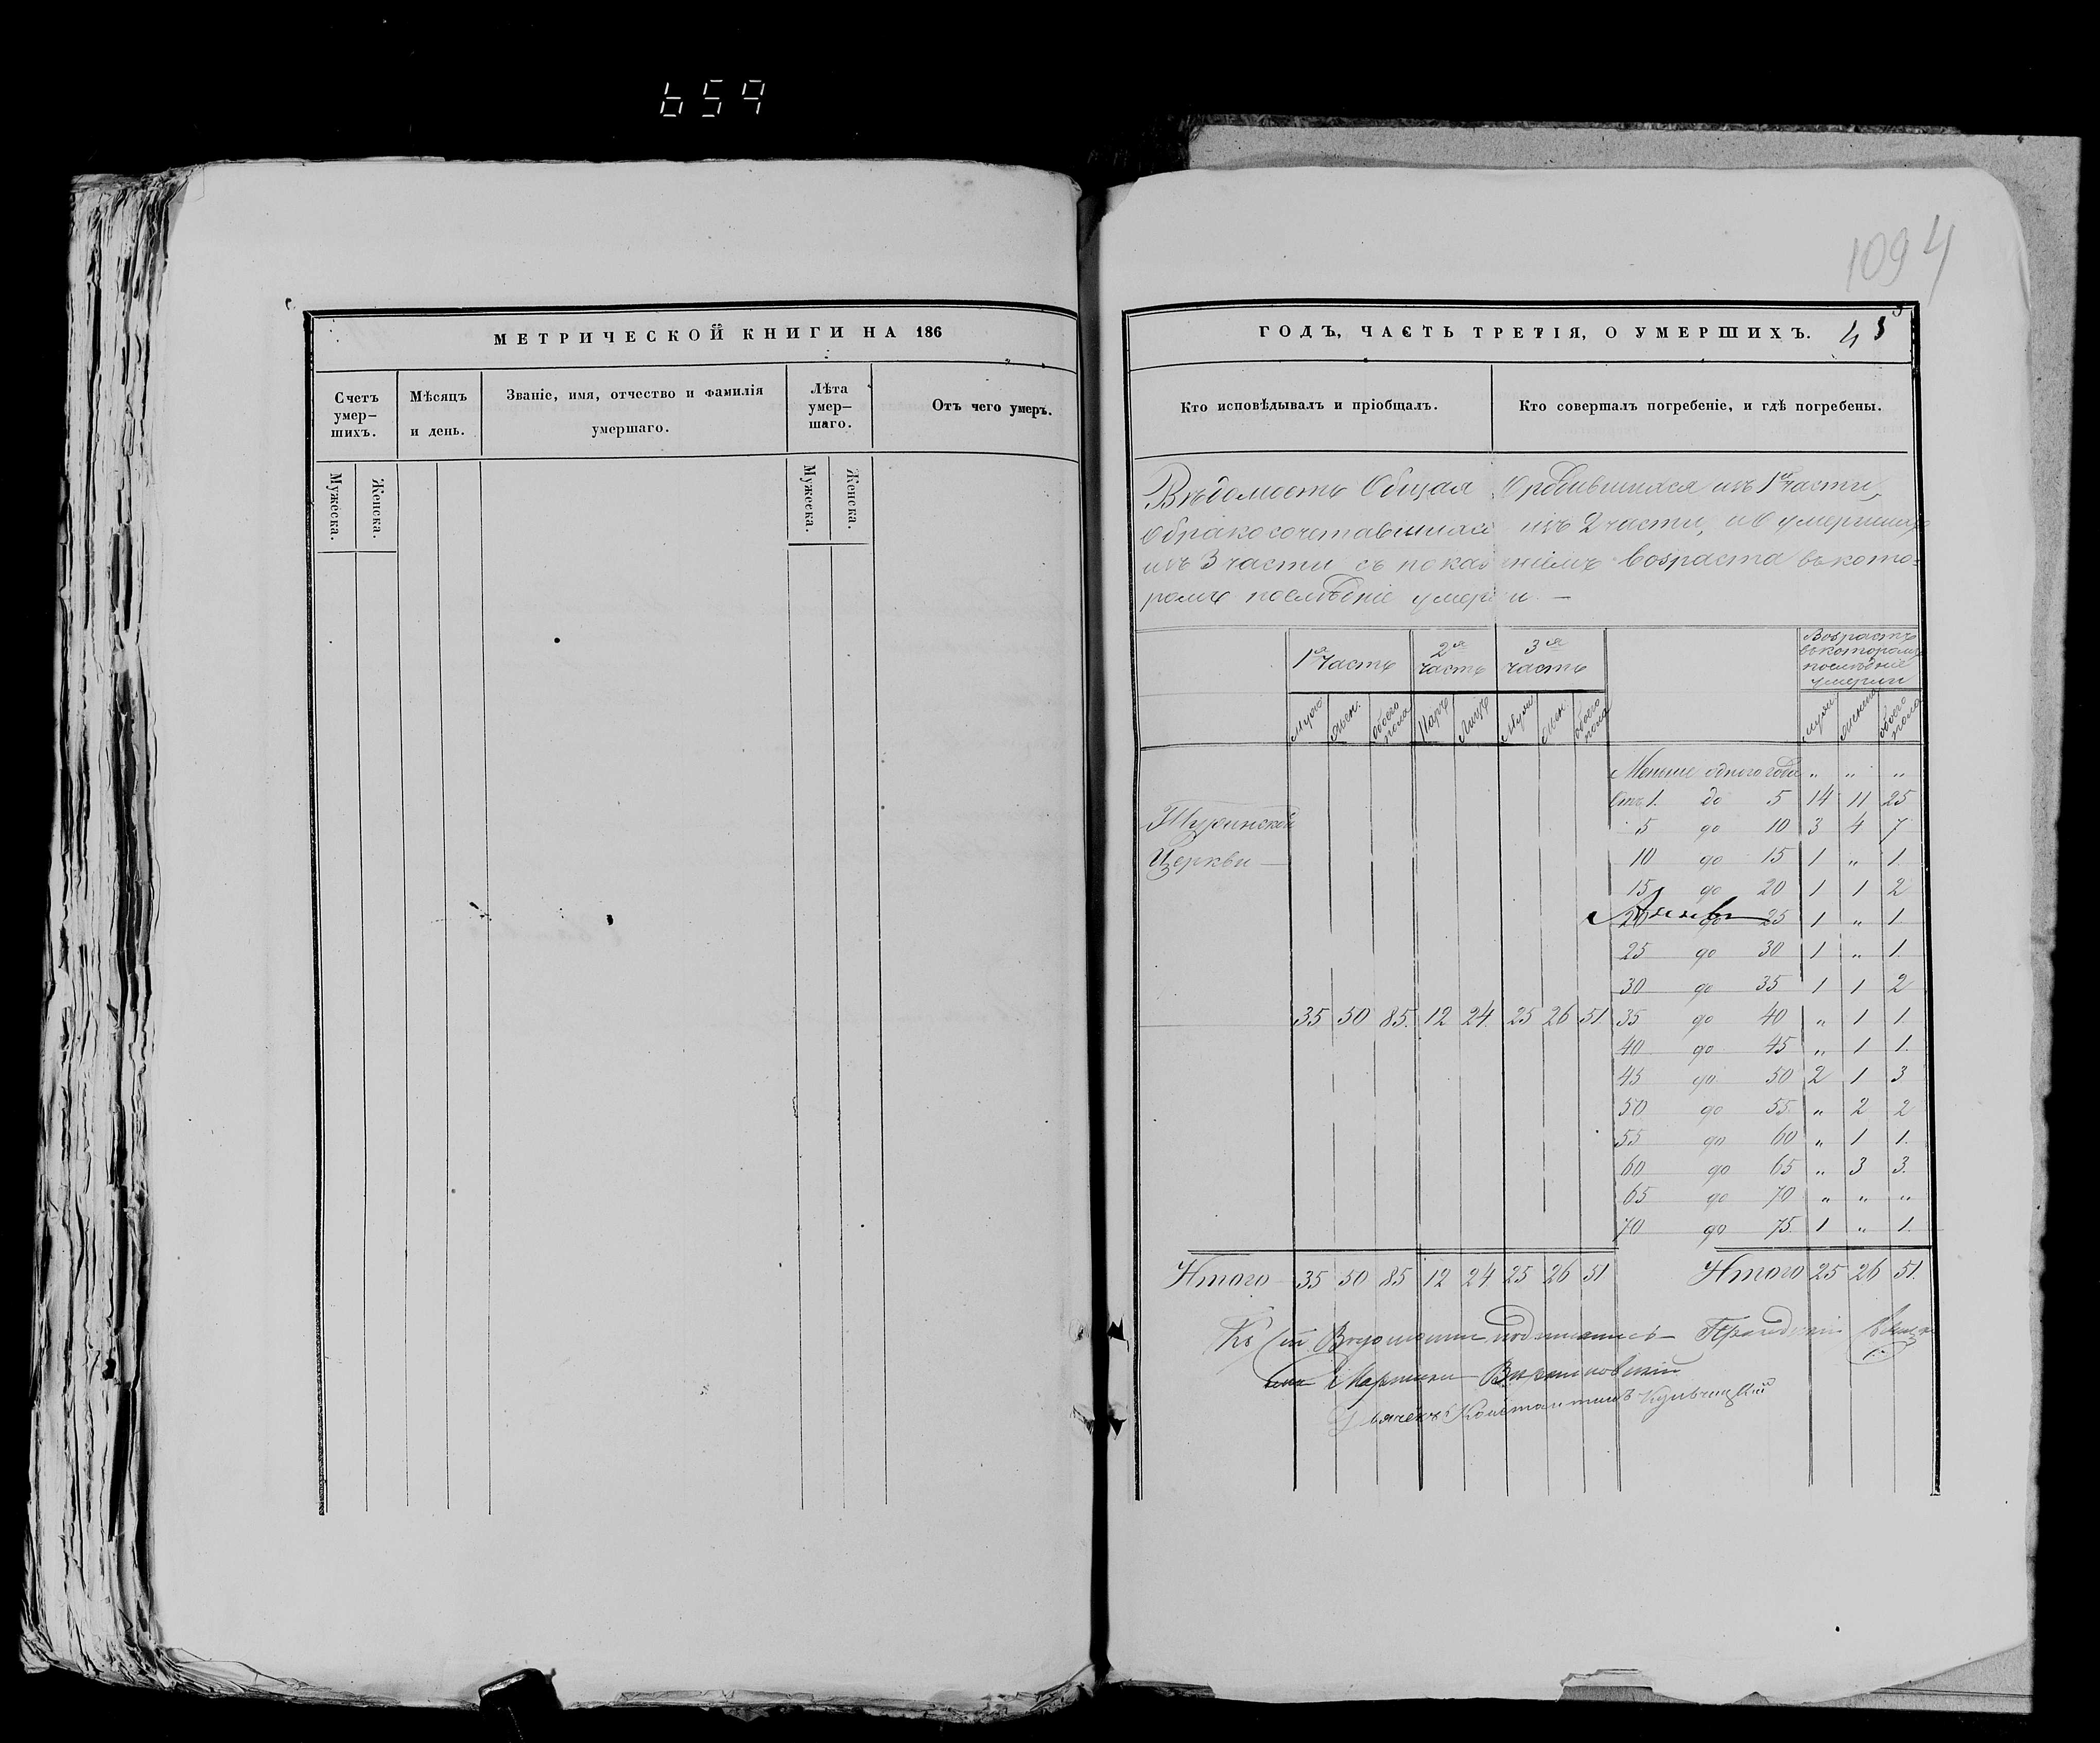 659
1094
МЕТРИЧЕСКОЙ КНИГИ НА 186
Счетъ умер-шихъ.
Мѣсяцъ и день.
Званіе, имя, отчество и фамилія умершаго.
Лѣта умер-шаго.
Отъ чего умеръ.
Мужеска. Женска. Мужеска. Женска.
ГОДЪ, ЧАСТЬ ТРЕТІЯ, О УМЕРШИХЪ.
Кто исповѣдывалъ и пріобщалъ.
Кто совершалъ погребеніе, и гдѣ погребены.
Вѣдомость Общая О родившихся изъ 1й части,
О бракосочетавшихся изъ 2 части, и О умершихъ
изъ 3 части съ показаніемъ возраста въ кото-
ромъ послѣдніе умерли —
1я часть 2я часть 3я часть
Возрастъ въ которомъ послѣдніе умерли
Муж. жен. обоего пола Паръ Лицъ Муж. жен. обоего пола муж. женска обоего пола
Меньше одного года „ „ „
Отъ 1. до 5 14 11 25
5 до 10 3 4 7
Церкви —
10 до 15 1 „ 1
15 до 20 1 1 2
20 до 25 1 „ 1
25 до 30 1 „ 1.
30 до 35 1 1 2
35 50 85. 12 24. 25 26 51. 35 до 40 „ 1 1.
40 до 45 „ 1 1.
45 до 50 2 1 3
50 до 55. „ 2 2
55 до 60 „ 1 1.
60 до 65 „ 3 3.
65 до 70 „ „ „
70 до 75. 1 „ 1.
Итого 35 50 85 12 24 25 26 51 Итого 25 26 51.
Къ сій
Константинъ